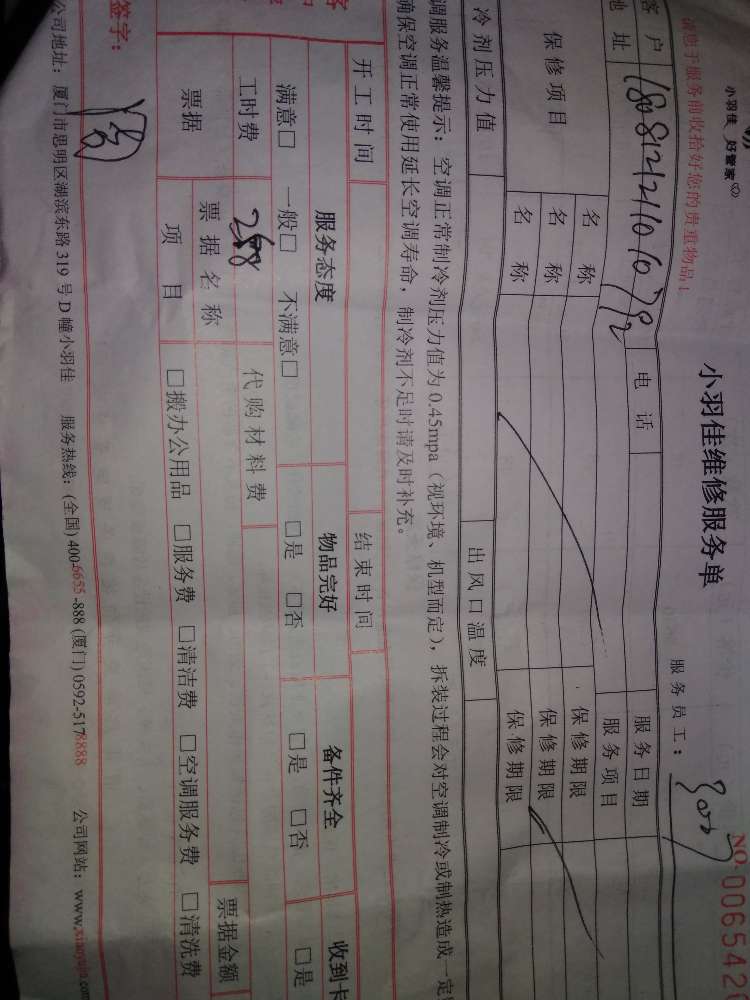 小羽佳 好管家
小羽佳维修服务单
NO. 0065542
请您于服务前收拾好您的贵重物品！
服务员工：
客户
电话
服务日期
地址
服务项目
保修项目
名称
保修期限
名称
保修期限
名称
保修期限
冷剂压力值
出风口温度
调服务温馨提示：空调正常制冷剂压力值为0.45mpa（视环境、机型而定），拆装过程会对空调制冷或制热造成一定
确保空调正常使用延长空调寿命，制冷剂不足时请及时补充。
开工时间
结束时间
服务态度
物品完好
备件齐全
收到卡
满意□ 一般□ 不满意□
□是 □否
□是 □否
□是
工时费
288
代购材料费
票据
票据名称
票据金额
项目
□搬办公用品 □服务费 □清洁费 □空调服务费 □清洗费
签字：
公司地址：厦门市思明区湖滨东路319号D幢小羽佳 服务热线：(全国) 400-6655-888 (厦门) 0592-5178888 公司网站：www.xiaoyujia.com